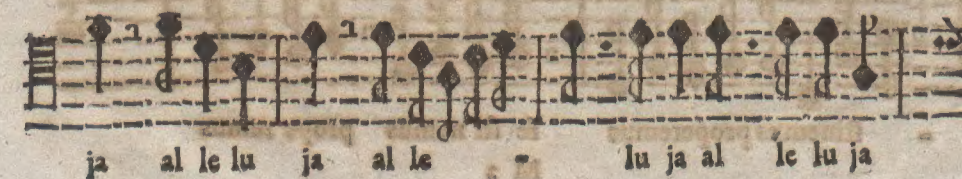 ja al le lu ja al le - lu ja al le lu ja